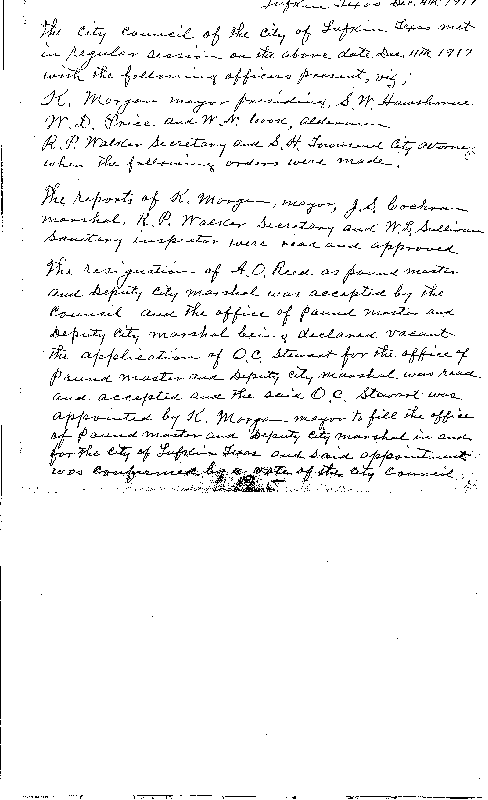 Lufkin Texas Dec. 11th 1917
The City Council of the City of Lufkin Texas met
in regular session on the above date Dec 11th 1917
with the following officers present, viz;
K. Morgan mayor presiding, S. W. Henderson
W. D. Price and W. N. Cook, Aldermen
R. P. Walker Secretary and S. H. Townsend City attorney
when the following orders were made.
The reports of K. Morgan, mayor, J. S. Cochran
marshal, R. P. Walker Secretary and W. L. Sullivan
Sanitary inspector were read and approved
The resignation of A. O. Reid as pound master
and Deputy City marshal was accepted by the
Council and the office of Pound master and
Deputy City marshal being declared vacant
the application of O. C. Stewart for the office of
Pound master and Deputy City marshal was read
and accepted and the said O. C. Stewart was
appointed by K. Morgan mayor to fill the office
of Pound master and Deputy City marshal in and
for the City of Lufkin Texas and said appointment
was confirmed by a vote of the City Council.